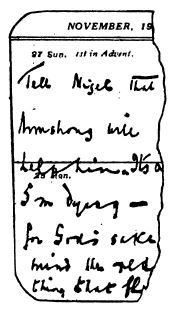 NOVEMBER, 19
27 Sun. 1st in Advent.
Tell Nigel that
Armstrong will
help him. It's a
28 Mon.
I'm dying —
for God's sake
mind the red
thing that